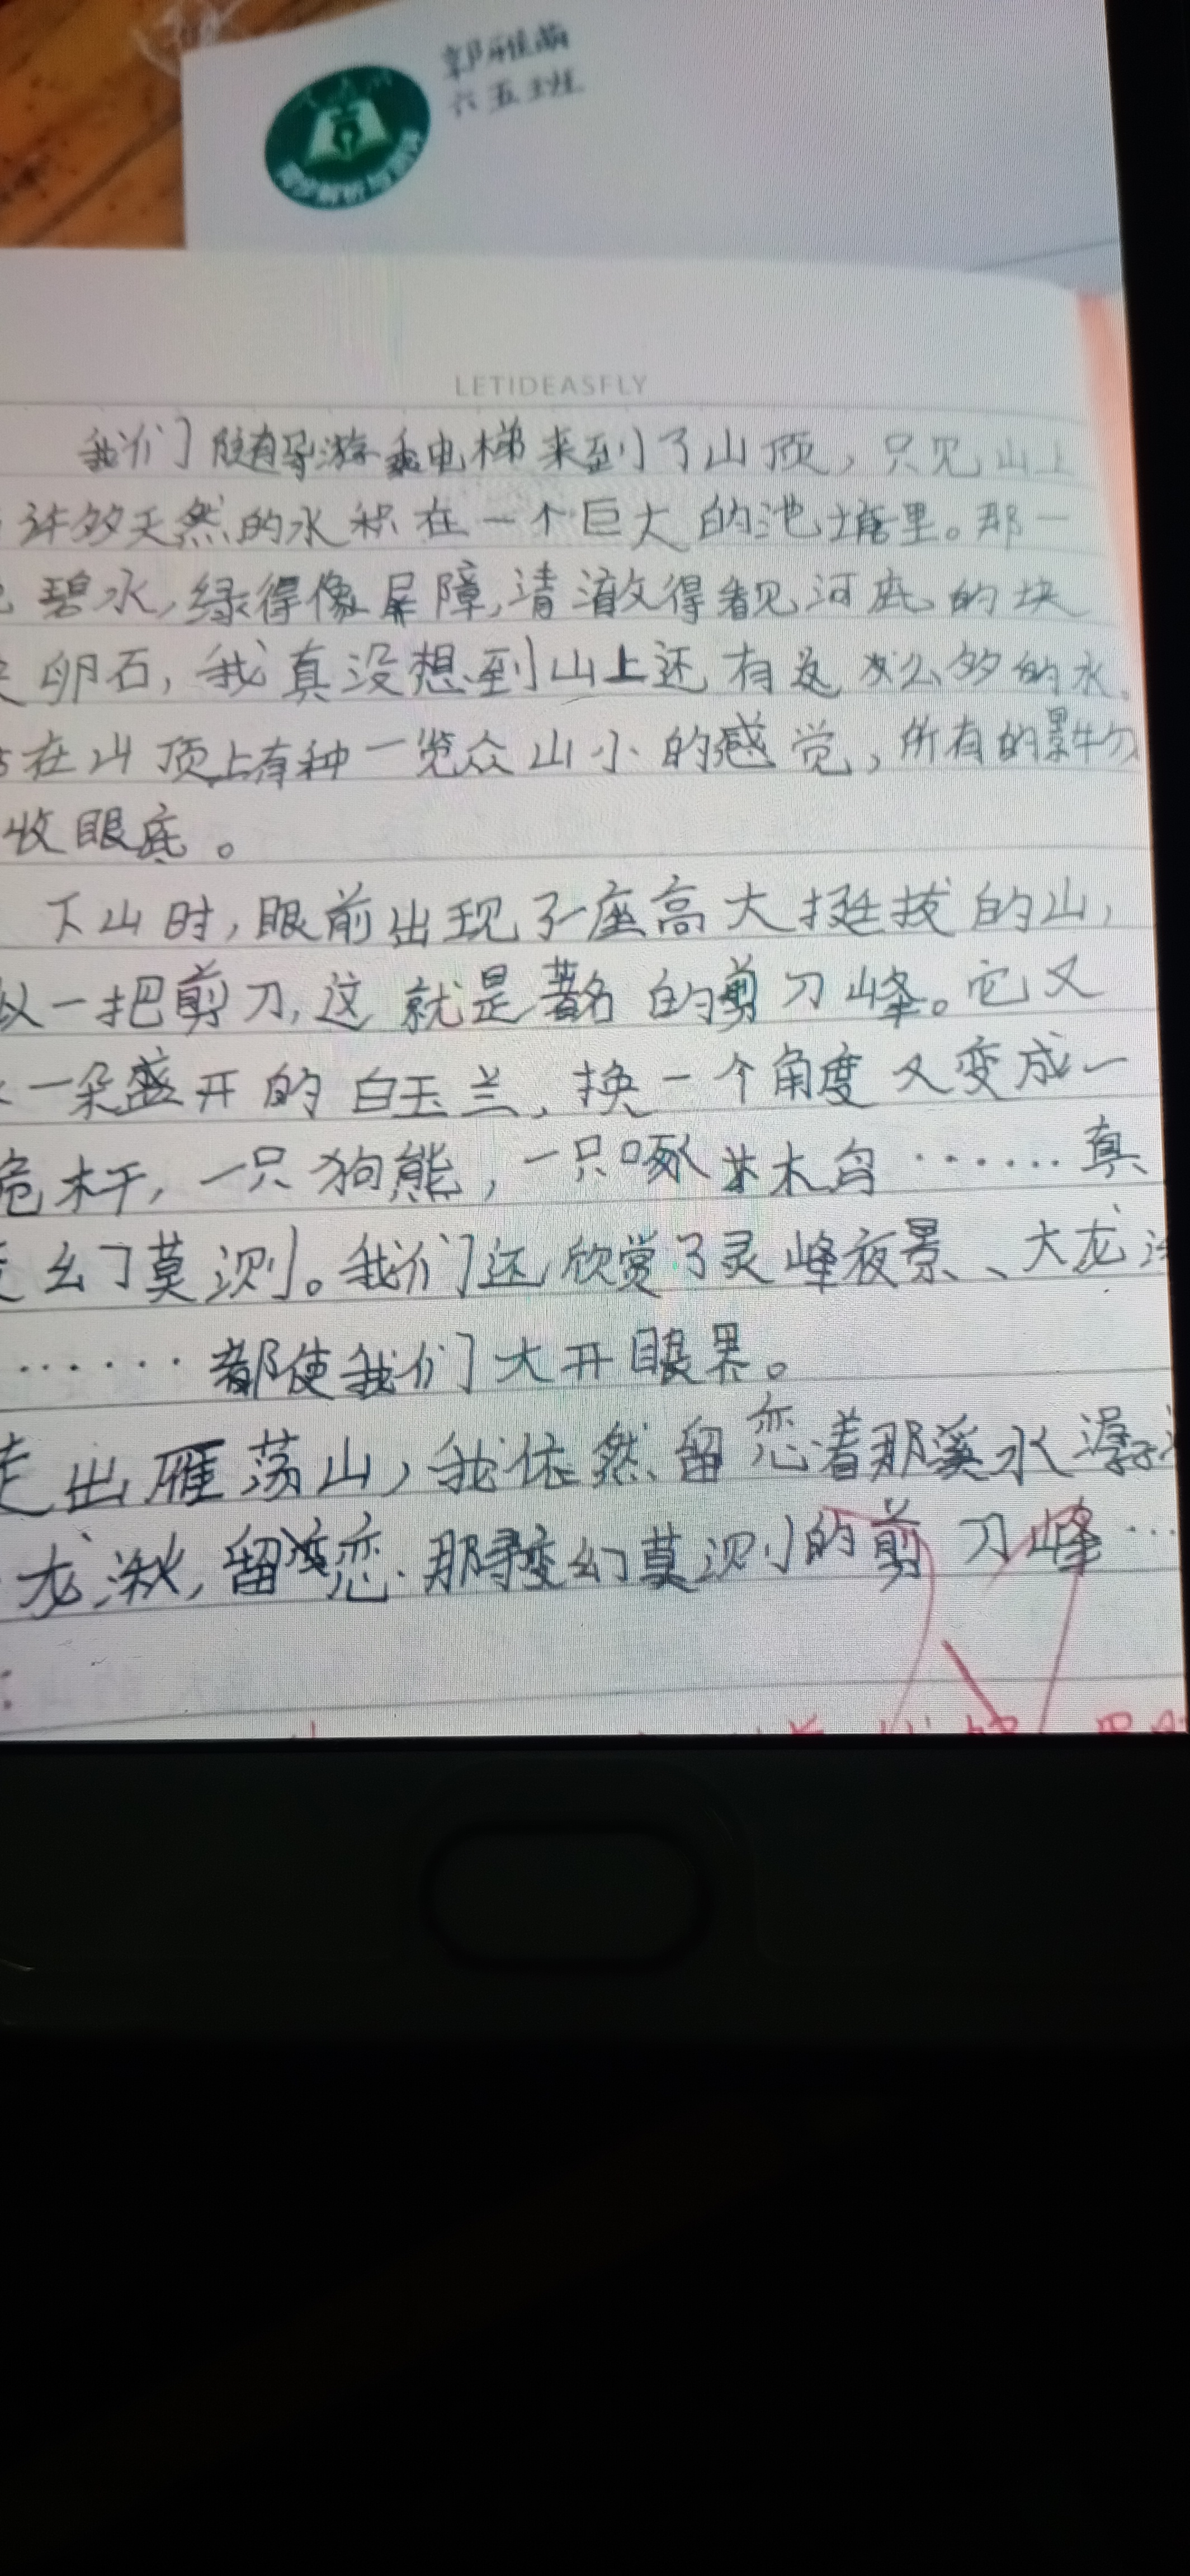 郭雅萌
六五班
同步解析与测评
LETIDEASFLY
我们随导游乘电梯来到了山顶，只见山上
许多天然的水积在一个巨大的池塘里。那一
碧水，绿得像屏障，清澈得看见河底的块
卵石，我真没想到山上还有这么多的水。
在山顶上有种一览众山小的感觉，所有的景物
收眼底。
下山时，眼前出现了一座高大挺拔的山，
似一把剪刀，这就是著名的剪刀峰。它又
一朵盛开的白玉兰，换一个角度又变成一
桅杆，一只狗熊，一只啄木鸟······真
变幻莫测。我们还欣赏了灵峰夜景、大龙湫
······都使我们大开眼界。
走出雁荡山，我依然留恋着那溪水潺潺
龙湫，留恋那变幻莫测的剪刀峰···